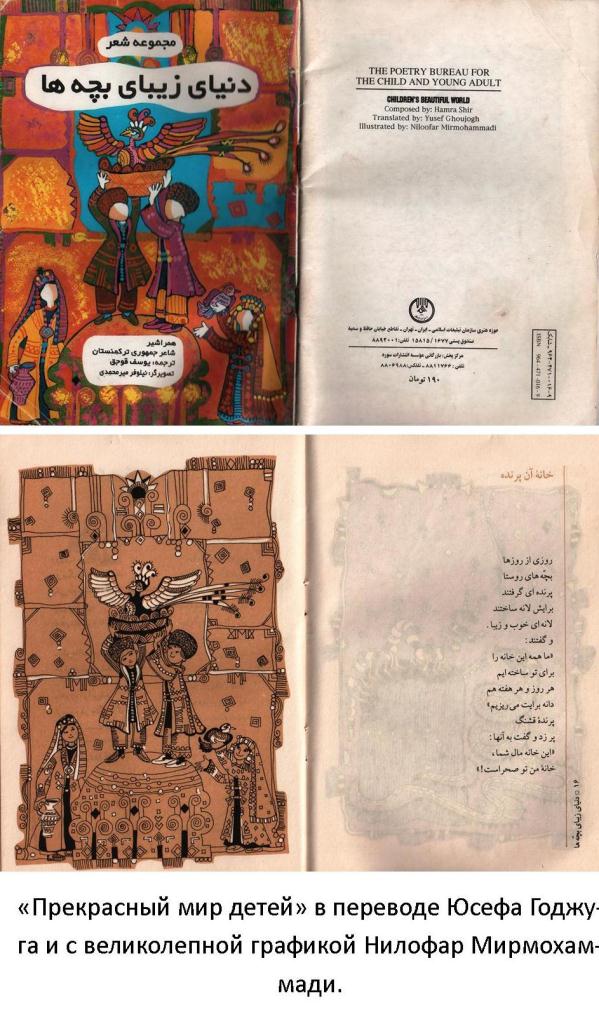 مجموعه شعر
دنیای زیبای بچه ها
همرا شیر
شاعر جمهوری ترکمنستان
ترجمه: یوسف قوجق
تصویرگر: نیلوفر میرمحمدی
THE POETRY BUREAU FOR
THE CHILD AND YOUNG ADULT
CHILDREN'S BEAUTIFUL WORLD
Composed by: Hamra Shir
Translated by: Yusef Ghoujogh
Illustrated by: Niloofar Mirmohammadi
حوزه هنری سازمان تبلیغات اسلامی ـ ایران ـ تهران ـ تقاطع خیابان حافظ و سمیه
صندوق پستی ۱۶۷۷/ ۱۵۸۱۵ تلفن: ۸۸۹۲۰۰۱
مرکز پخش: بازرگانی مؤسسه انتشارات سوره
تلفن: ۸۸۱۱۷۶۶ ـ تلفکس: ۸۸۰۶۹۸۸
۱۹۰ تومان
خانهٔ آن پرنده
روزی از روزها
بچّه های روستا
پرنده ای گرفتند
برایش لانه ساختند
لانه ای خوب و زیبا.
و گفتند:
«ما همه این خانه را
برای تو ساخته ایم
هر روز و هر هفته هم
دانه برایت می ریزیم»
پرندهٔ قشنگ
پر زد و گفت به آنها:
«این خانه مال شما،
خانهٔ من تو صحراست!»
۱۶ □ دنیای زیبای بچّه ها
«Прекрасный мир детей» в переводе Юсефа Годжу-
га и с великолепной графикой Нилофар Мирмохам-
мади.